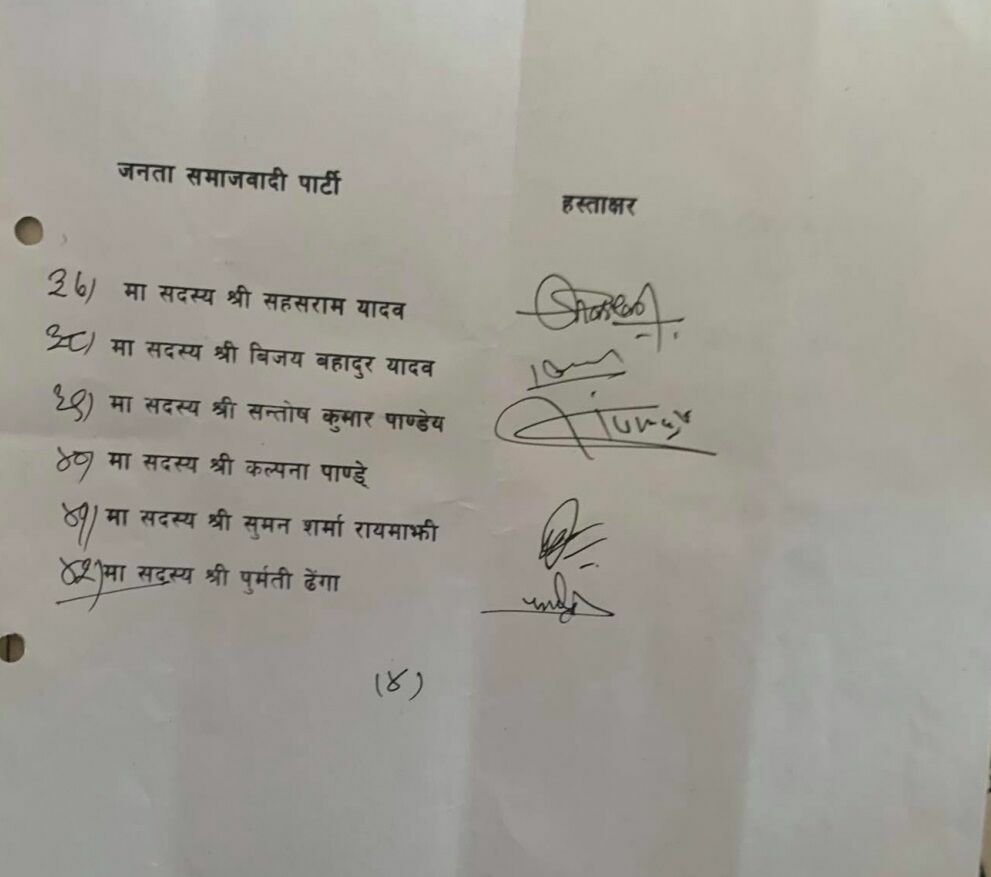 जनता समाजवादी पार्टी
हस्ताक्षर
३७) मा सदस्य श्री सहसराम यादव
३८) मा सदस्य श्री बिजय बहादुर यादव
३९) मा सदस्य श्री सन्तोष कुमार पाण्डेय
४०) मा सदस्य श्री कल्पना पाण्डे्
४१) मा सदस्य श्री सुमन शर्मा रायमाझी
४२) मा सदस्य श्री पुर्मती ढेंगा
(४)